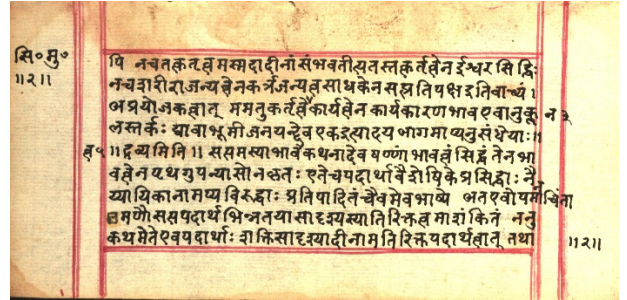 सि॰ मु॰
॥२॥
पि नचतत्कर्तृत्वमस्मदादीनांसंभवतीत्यतस्तत्कर्तृत्वेन ईश्वरसिद्धिः
नचशरीराजन्यत्वेनकर्त्रजन्यत्वसाधकेनसत्प्रतिपक्षइतिवाच्यं ।
अप्रयोजकत्वात् ममतुकर्तृत्वेकार्यत्वेनकार्यकारणभावएवानुकू न २
लस्तर्कः द्यावाभूमीजनयन्देवएकइत्यादयआगमाप्यनुसंधेयाः॥
॥द्रव्यमिति॥ सप्तमस्याभावत्वकथनादेव षण्णांभावत्वंसिद्धंतेनभा
वत्वेनपृथगुपन्यासोनकृतः एतेचपदार्थावैशेषिकेप्रसिद्धाः नै
य्यायिकानामप्यविरुद्धाः प्रतिपादितंचैवमेवभाष्ये अतएवोपमाचिंता न
मणौसप्तपदार्थभिन्नतयासादृश्यस्यातिरिक्तत्वमाशंकितं ननु
कथमेतेएवपदार्थाः शक्तिसादृश्यादीनामतिरिक्तपदार्थत्वात् तथा
॥२॥